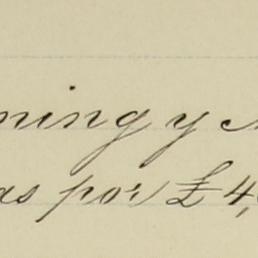 ning y
as por £4,